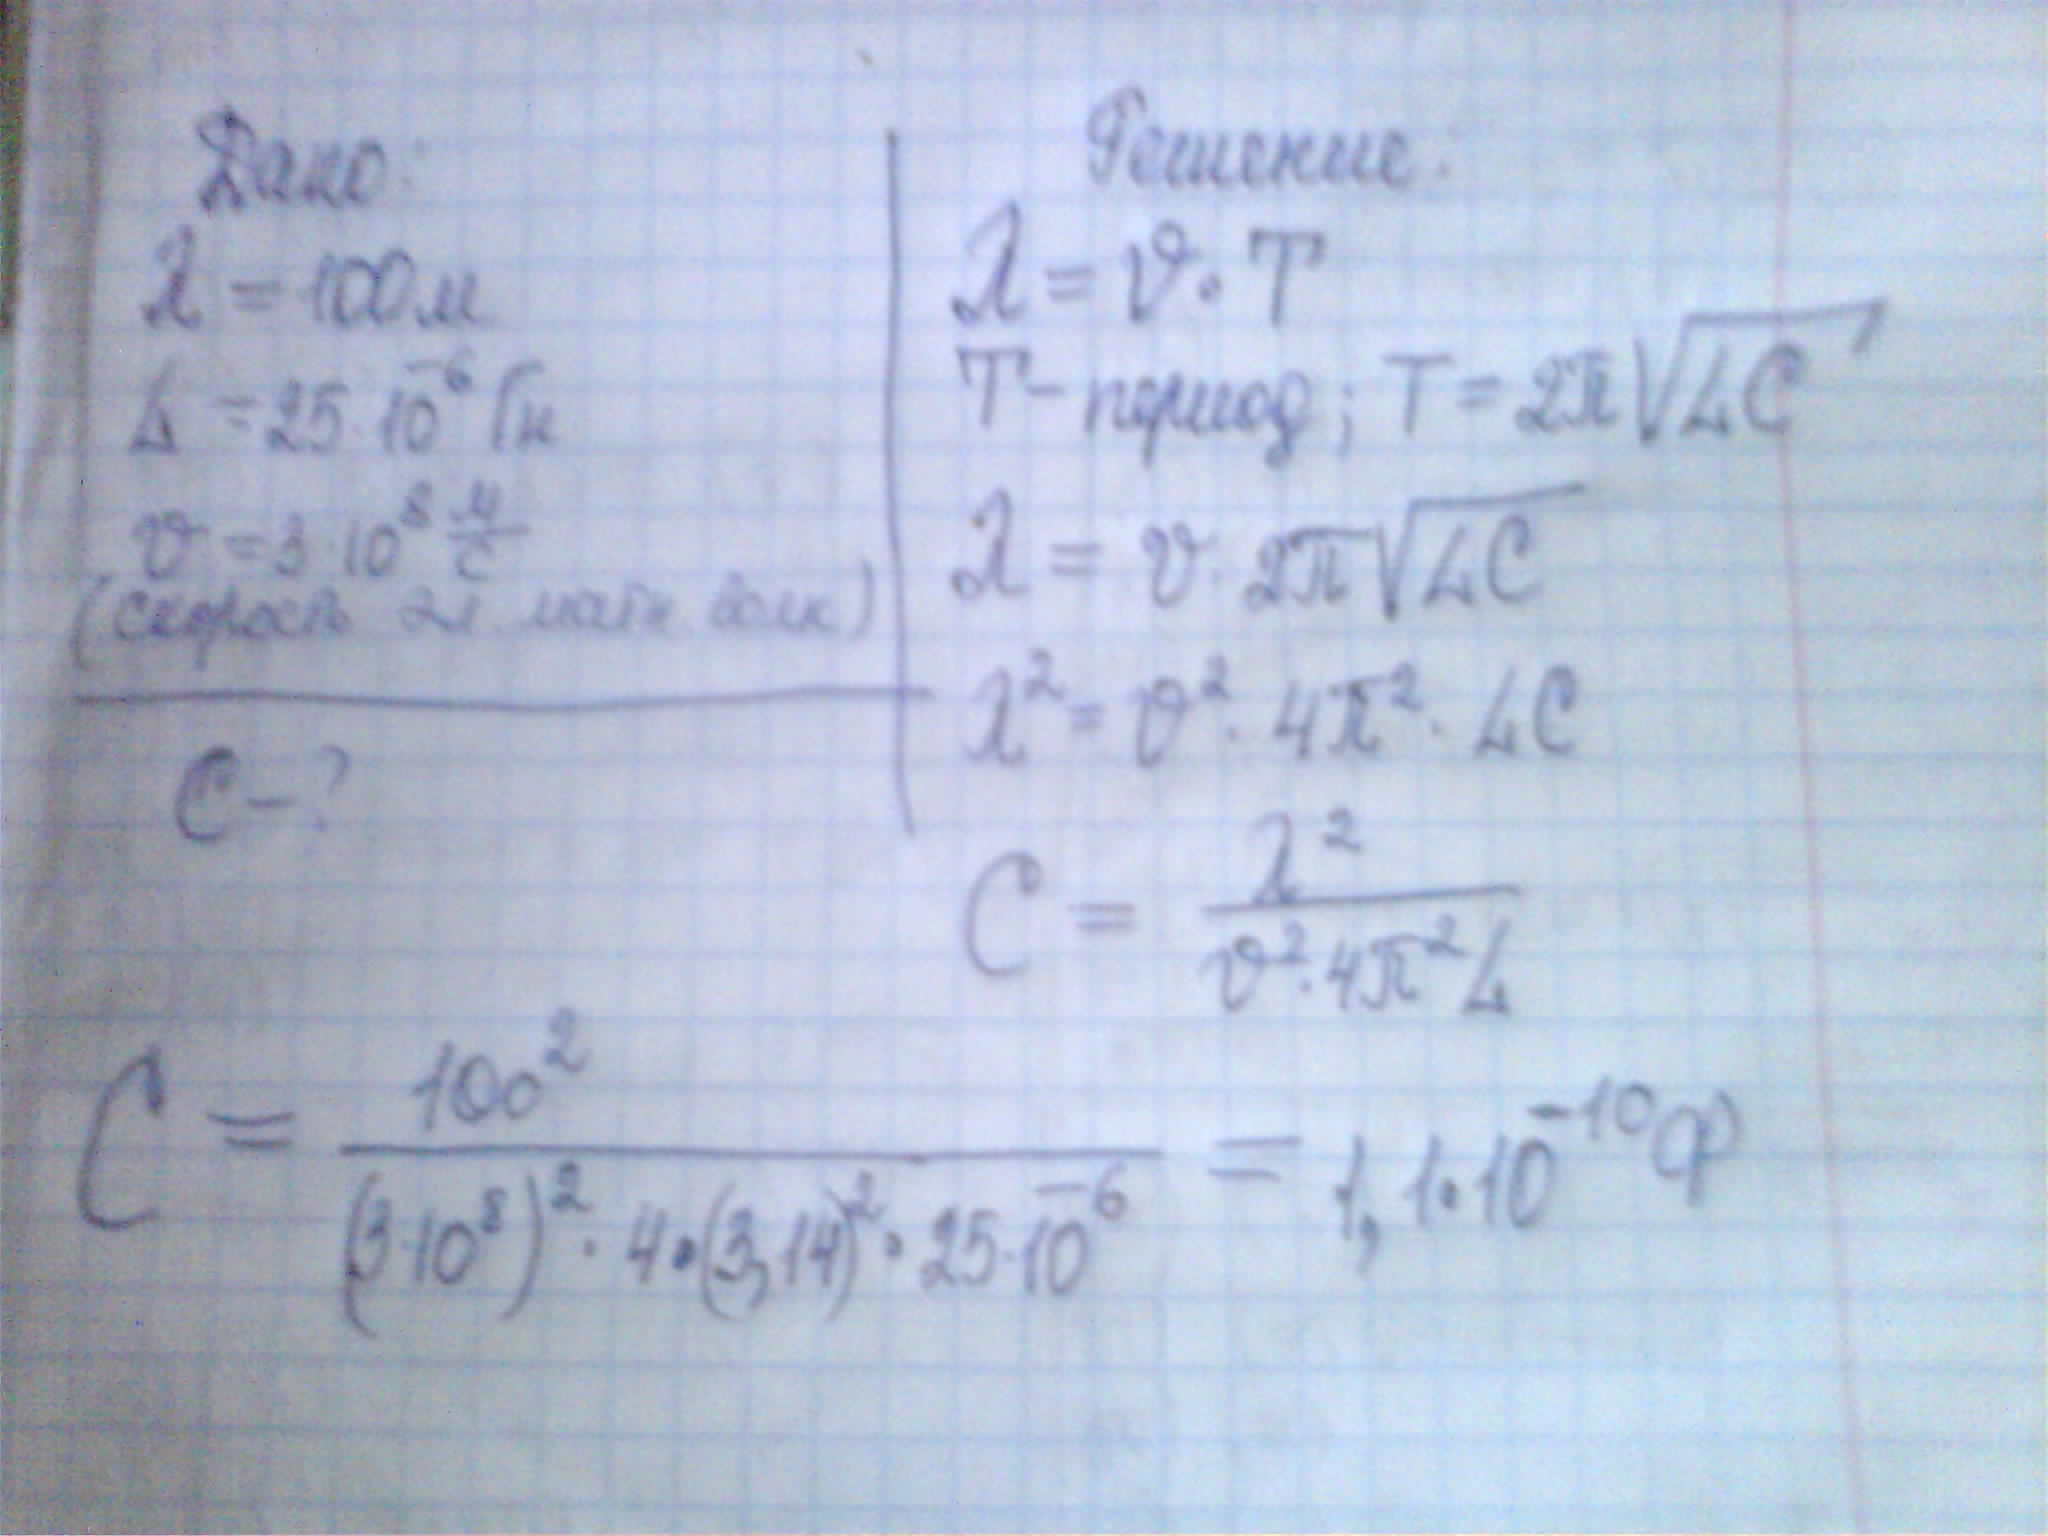 Дано:
λ = 100 м
L = 25·10⁻⁶ Гн
υ = 3·10⁸ м/с
(скорость эл. магн. волн)
C – ?
Решение:
λ = υ·T
T – период; T = 2π√LC
λ = υ·2π√LC
λ² = υ²·4π²·LC
C = λ² / υ²·4π²L
C = 100² / (3·10⁸)²·4·(3,14)²·25·10⁻⁶ = 1,1·10⁻¹⁰ Ф